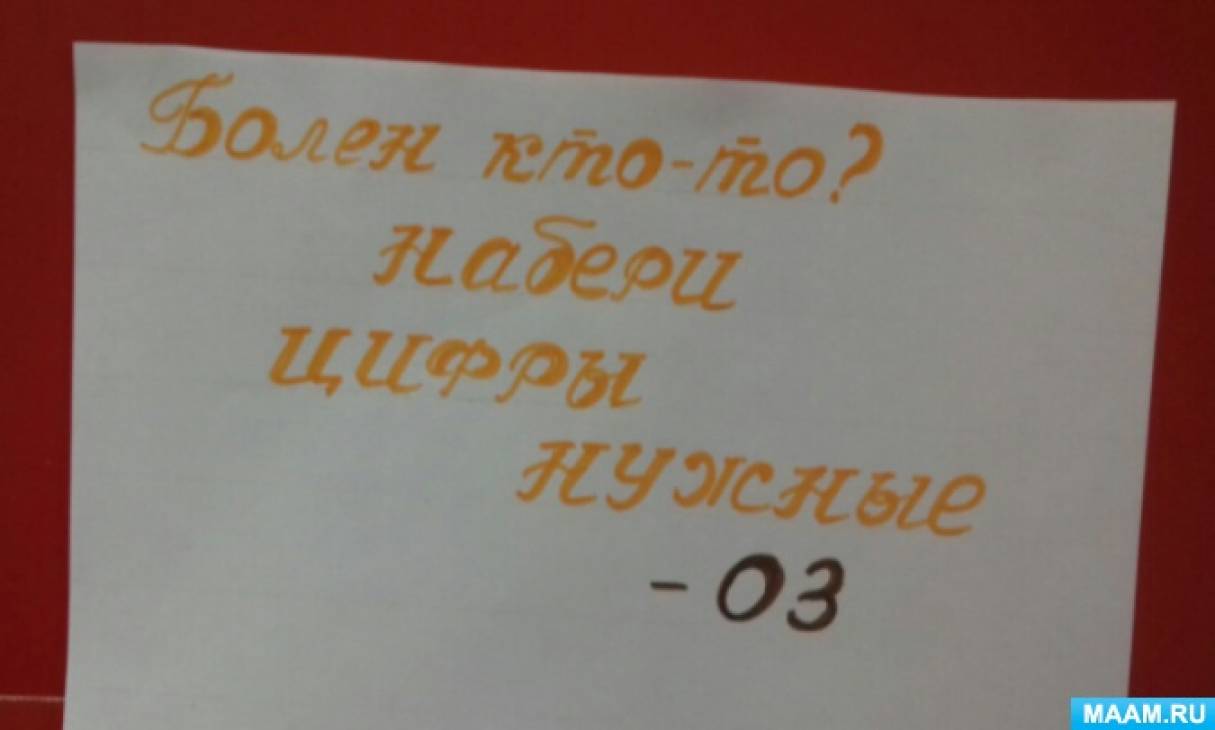 Болен кто-то?
набери
цифры
нужные
- 03
MAAM.RU